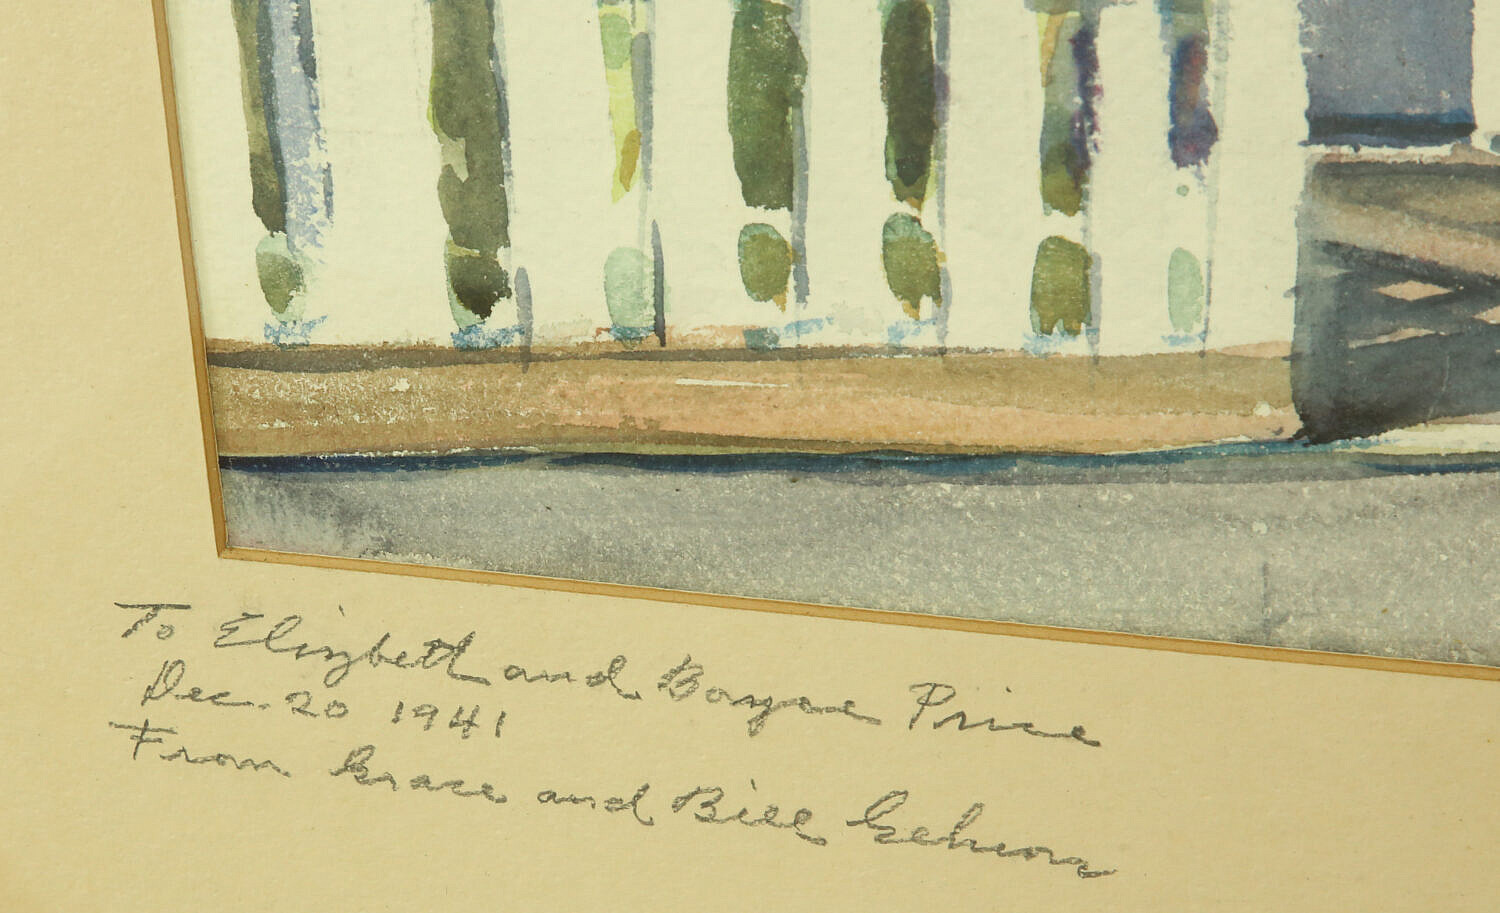 To Elizbeth and Boyce Price
Dec. 20 1941
From Grace and Bill Gehron